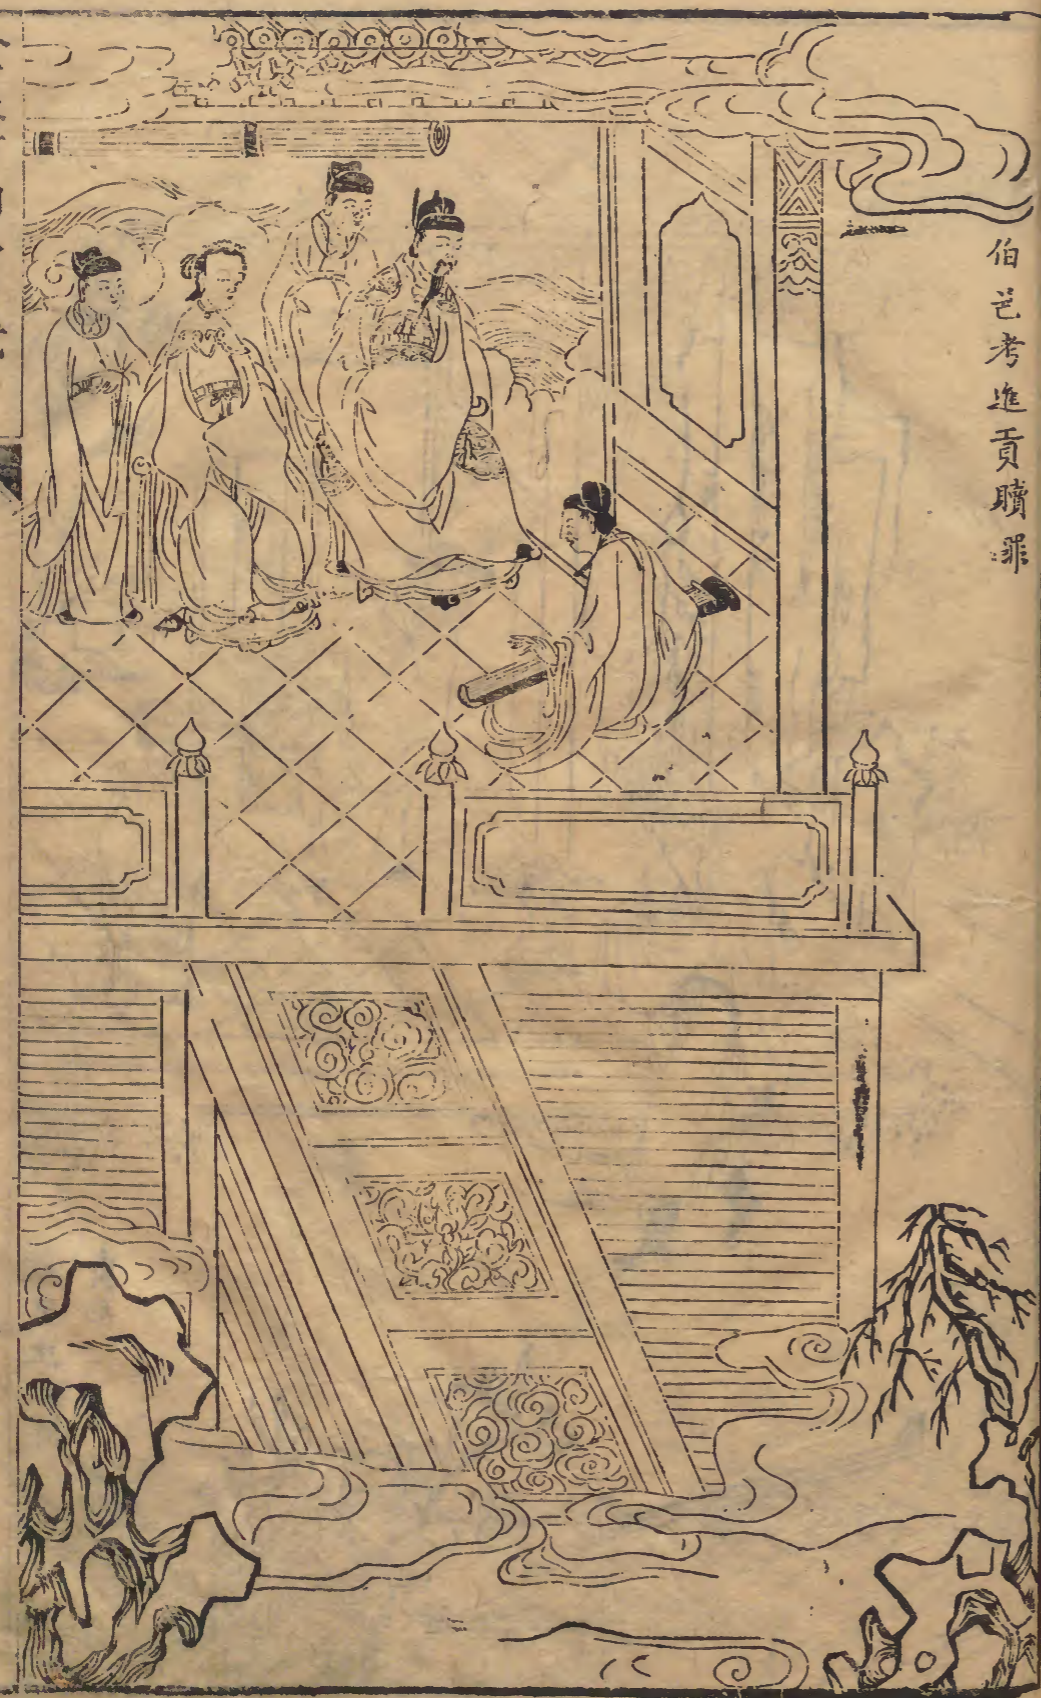 伯邑考進貢贖罪